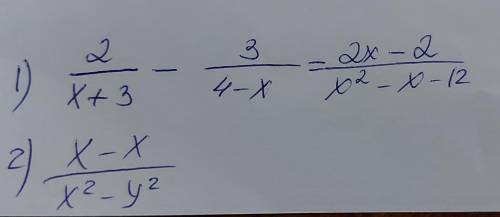 1) 2/(x+3) - 3/(4-x) = (2x-2)/(x²-x-12)
2) (x-x)/(x²-y²)